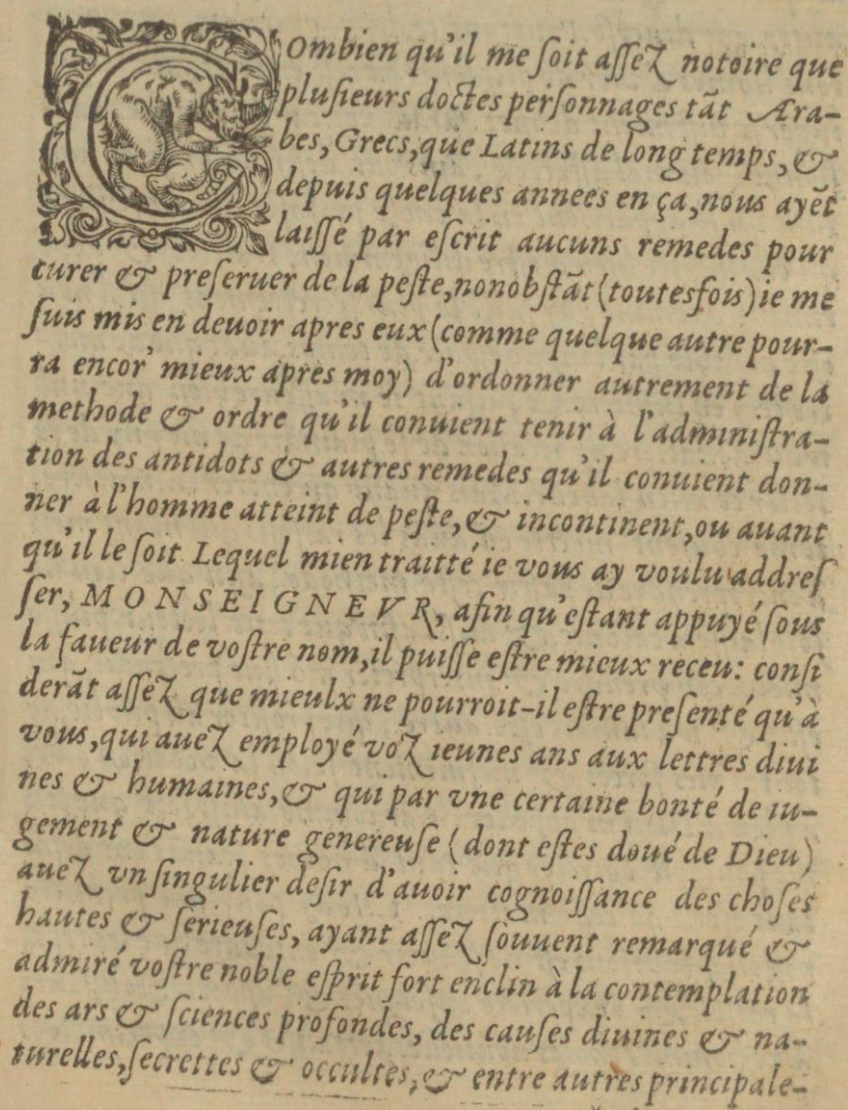 Combien qu'il me ſoit aſſez notoire que
pluſieurs doctes perſonnages tãt Ara-
bes, Grecs, que Latins de long temps, &
depuis quelques annees en ça, nous ayẽt
laiſſé par eſcrit aucuns remedes pour
curer & preſeruer de la peſte, nonobſtãt (toutesfois) ie me
ſuis mis en deuoir apres eux (comme quelque autre pour-
ra encor' mieux apres moy) d'ordonner autrement de la
methode & ordre qu'il conuient tenir à l'adminiſtra-
tion des antidots & autres remedes qu'il conuient don-
ner à l'homme atteint de peſte, & incontinent, ou auant
qu'il le ſoit Lequel mien traitté ie vous ay voulu addreſ
ſer, MONSEIGNEVR, afin qu'eſtant appuyé ſous
la faueur de voſtre nom, il puiſſe eſtre mieux receu: conſi
derãt aſſez que mieulx ne pourroit-il eſtre preſenté qu'à
vous, qui auez employé voz ieunes ans aux lettres diui
nes & humaines, & qui par vne certaine bonté de iu-
gement & nature genereuſe (dont eſtes doué de Dieu)
auez vn ſingulier deſir d'auoir cognoiſſance des choſes
hautes & ſerieuſes, ayant aſſez ſouuent remarqué &
admiré voſtre noble eſprit fort enclin à la contemplation
des ars & ſciences profondes, des cauſes diuines & na-
turelles, ſecrettes & occultes, & entre autres principale-